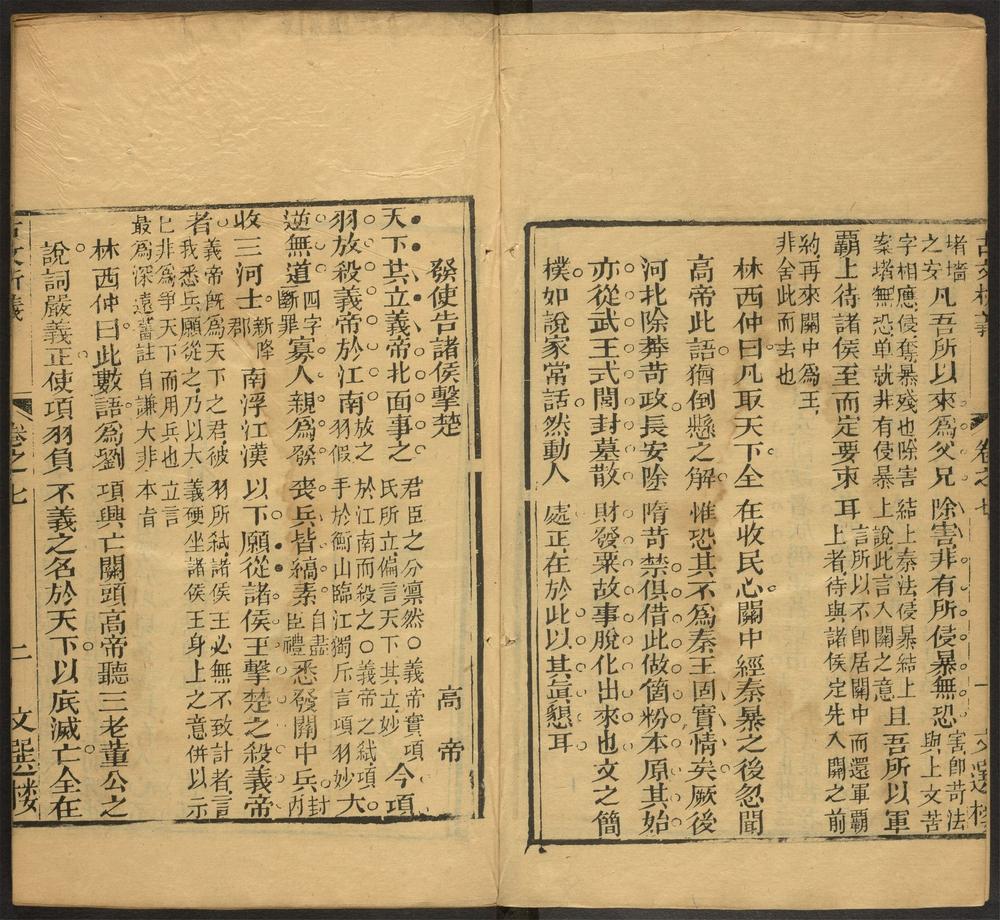 古文析義 卷之七 一 文選樓
堵墻之安凡吾所以來爲父兄除害非有所侵暴無恐害卽苛法與上文苦
字相應侵奪暴殘也除害結上秦法侵暴結上案堵無恐单就非有侵暴上說此言入關之意且吾所以軍
霸上待諸侯至而定要束耳言所以不卽居關中而還軍霸上者待與諸侯定先入關之前
約再來關中為王非舍此而去也
林西仲曰凡取天下全在收民心關中經秦暴之後忽聞
高帝此語猶倒懸之解惟恐其不爲秦王固實情矣厥後
河北除莽苛政長安除隋苛禁俱借此做箇粉本原其始
亦從武王式閭封墓散財發粟故事脫化出來也文之簡
樸如說家常話然動人處正在於此以其眞懇耳
發使告諸侯擊楚 高帝
天下共立義帝北面事之君臣之分凛然○義帝實項氏所立偏言天下共立妙今項
羽放殺義帝於江南放之於江南而殺之○義帝之弑項羽假手於衡山臨江獨斥言項羽妙大
逆無道四字斷罪寡人親爲發喪兵皆縞素自盡臣禮悉發關中兵封内
收三河士新降郡南浮江漢以下願從諸侯王擊楚之殺義帝
者義帝旣爲天下之君彼羽所弑諸侯王必無不致討者言我悉兵願從之乃以大義硬坐諸侯王身上之意併以示
已非爲爭天下而用兵也立言最為深遠舊註自謙大非本旨
林西仲曰此數語爲劉項興亡關頭高帝聽三老董公之
說詞嚴義正使項羽負不義之名於天下以底滅亡全在
古文析義 卷之七 二 文選樓